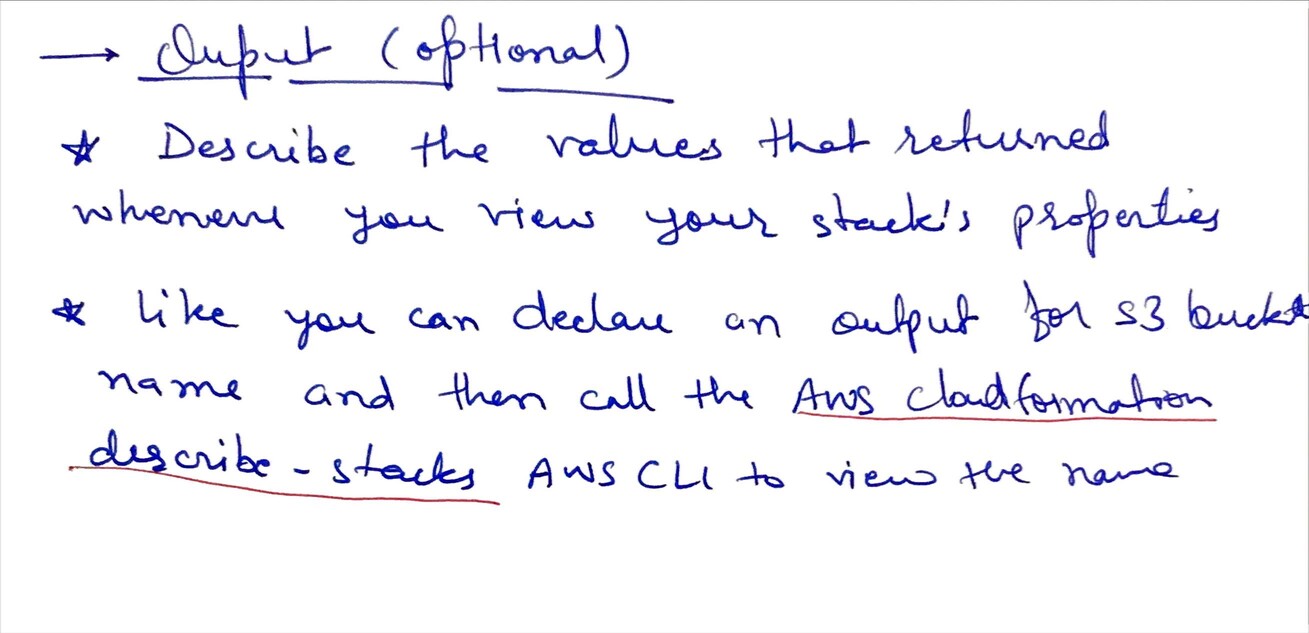 → Ouput (optional)
* Describe the values that returned
whenever you view your stack's properties
* like you can declare an output for s3 bucket
name and then call the Aws cloudformation
describe-stacks AWS CLI to view the name